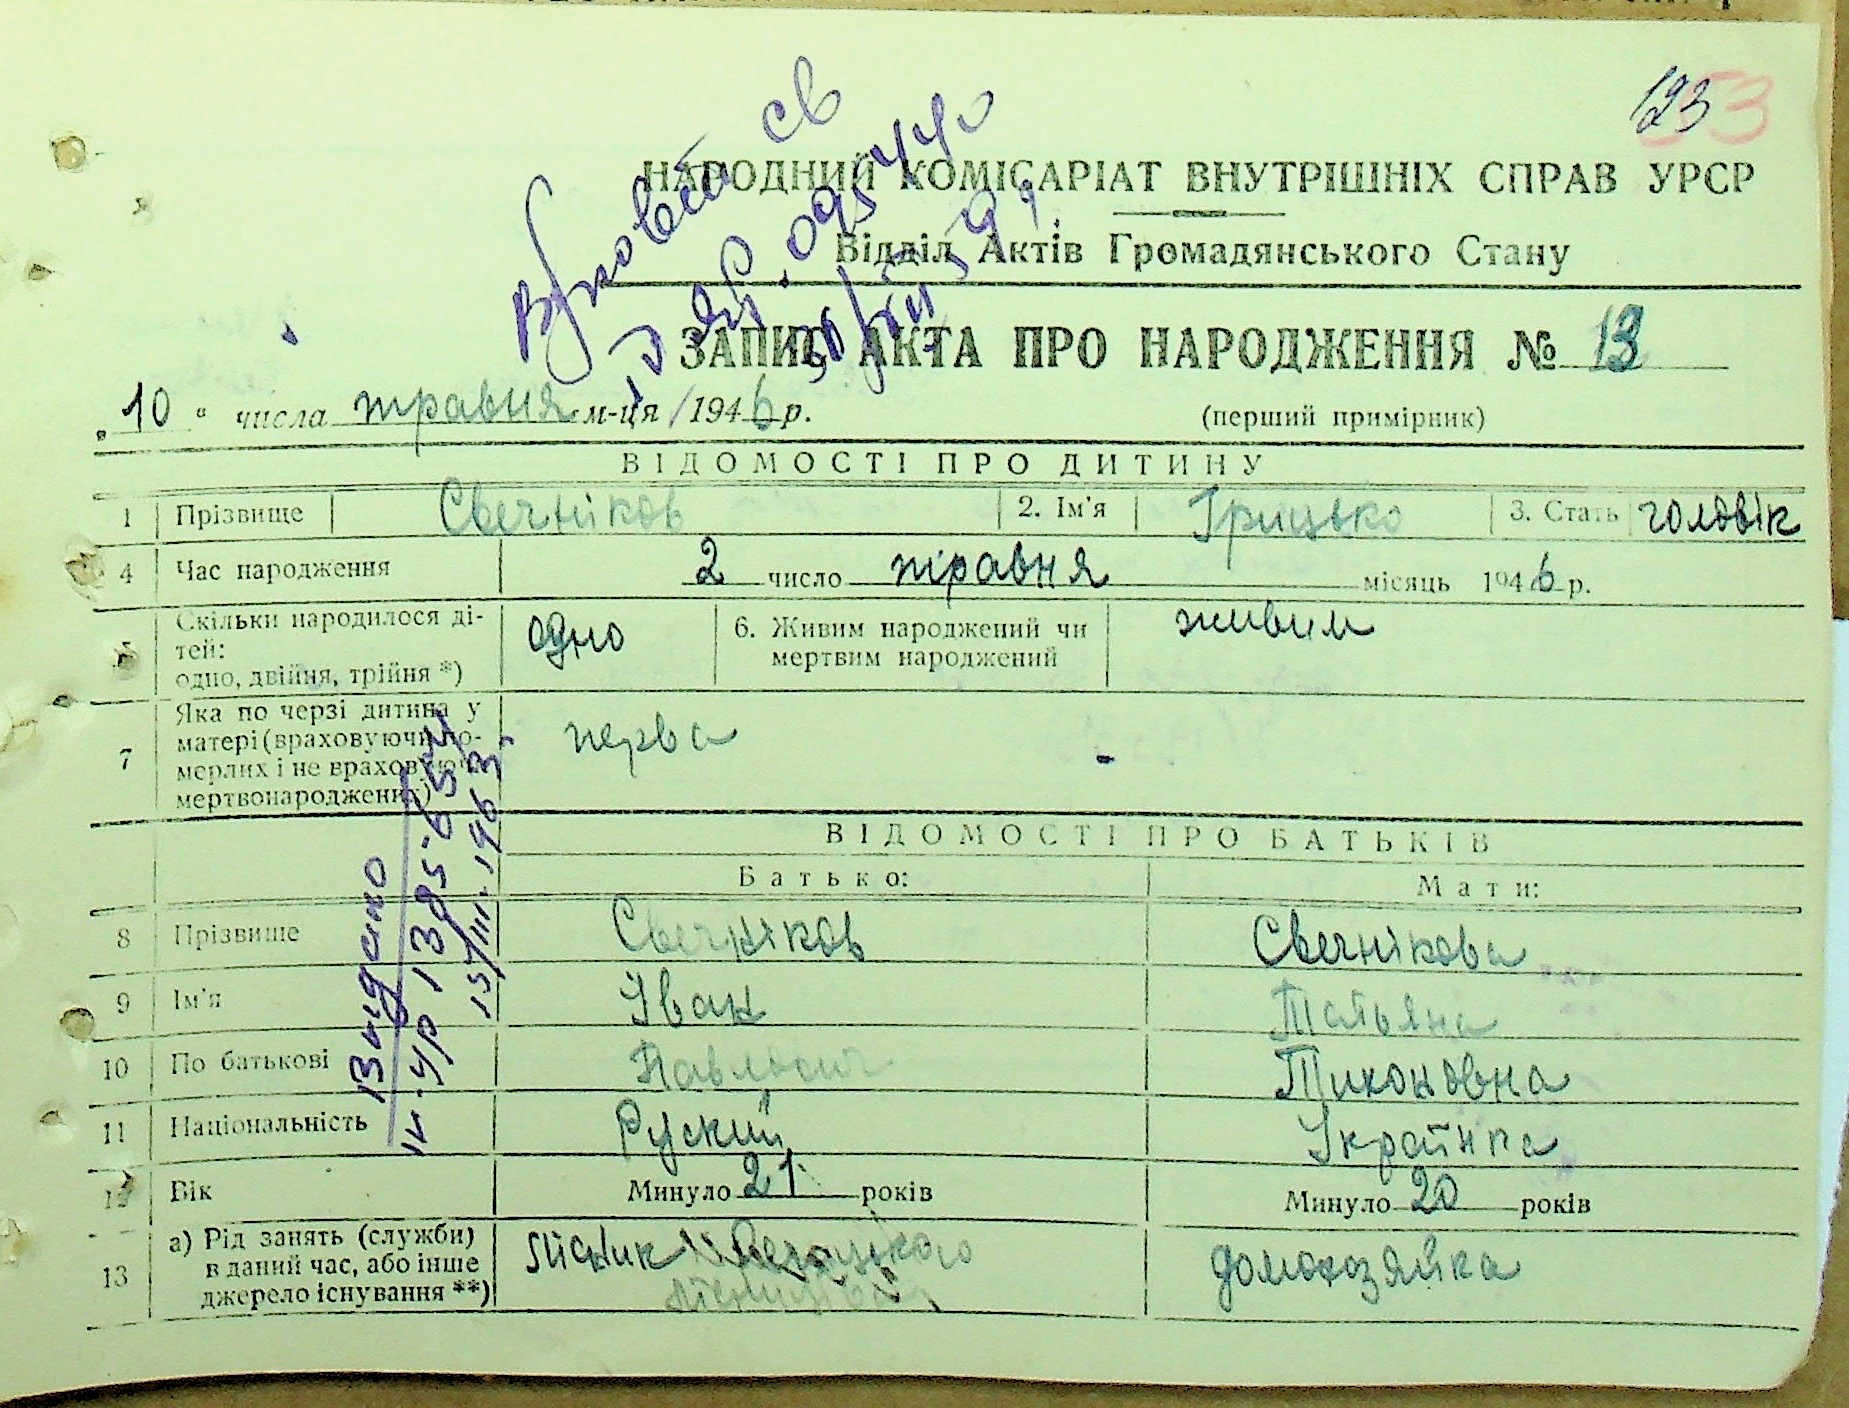 123
НАРОДНИЙ КОМІСАРІАТ ВНУТРІШНІХ СПРАВ УРСР
Відділ Актів Громадянського Стану
ЗАПИС АКТА ПРО НАРОДЖЕННЯ № 13
„10“ числа травня м-ця 1946 р. (перший примірник)
ВІДОМОСТІ ПРО ДИТИНУ
1 Прізвище Свечніков 2. Ім'я Грицько 3. Стать чоловік
4 Час народження 2 число травня місяць 1946 р.
5 Скільки народилося ді-
тей:
одно, двійня, трійня *) одно 6. Живим народжений чи
мертвим народжений живим
7 Яка по черзі дитина у
матері (враховуючи по-
мерлих і не враховуючи
мертвонароджених) перва
ВІДОМОСТІ ПРО БАТЬКІВ
Батько: Мати:
8 Прізвище Свечніков Свечнікова
9 Ім'я Іван Татьяна
10 По батькові Павлович Тихоновна
11 Національність Руский Українка
12 Вік Минуло 21 років Минуло 20 років
13 а) Рід занять (служби)
в даний час, або інше
джерело існування **) лісник домохозяйка
Видано